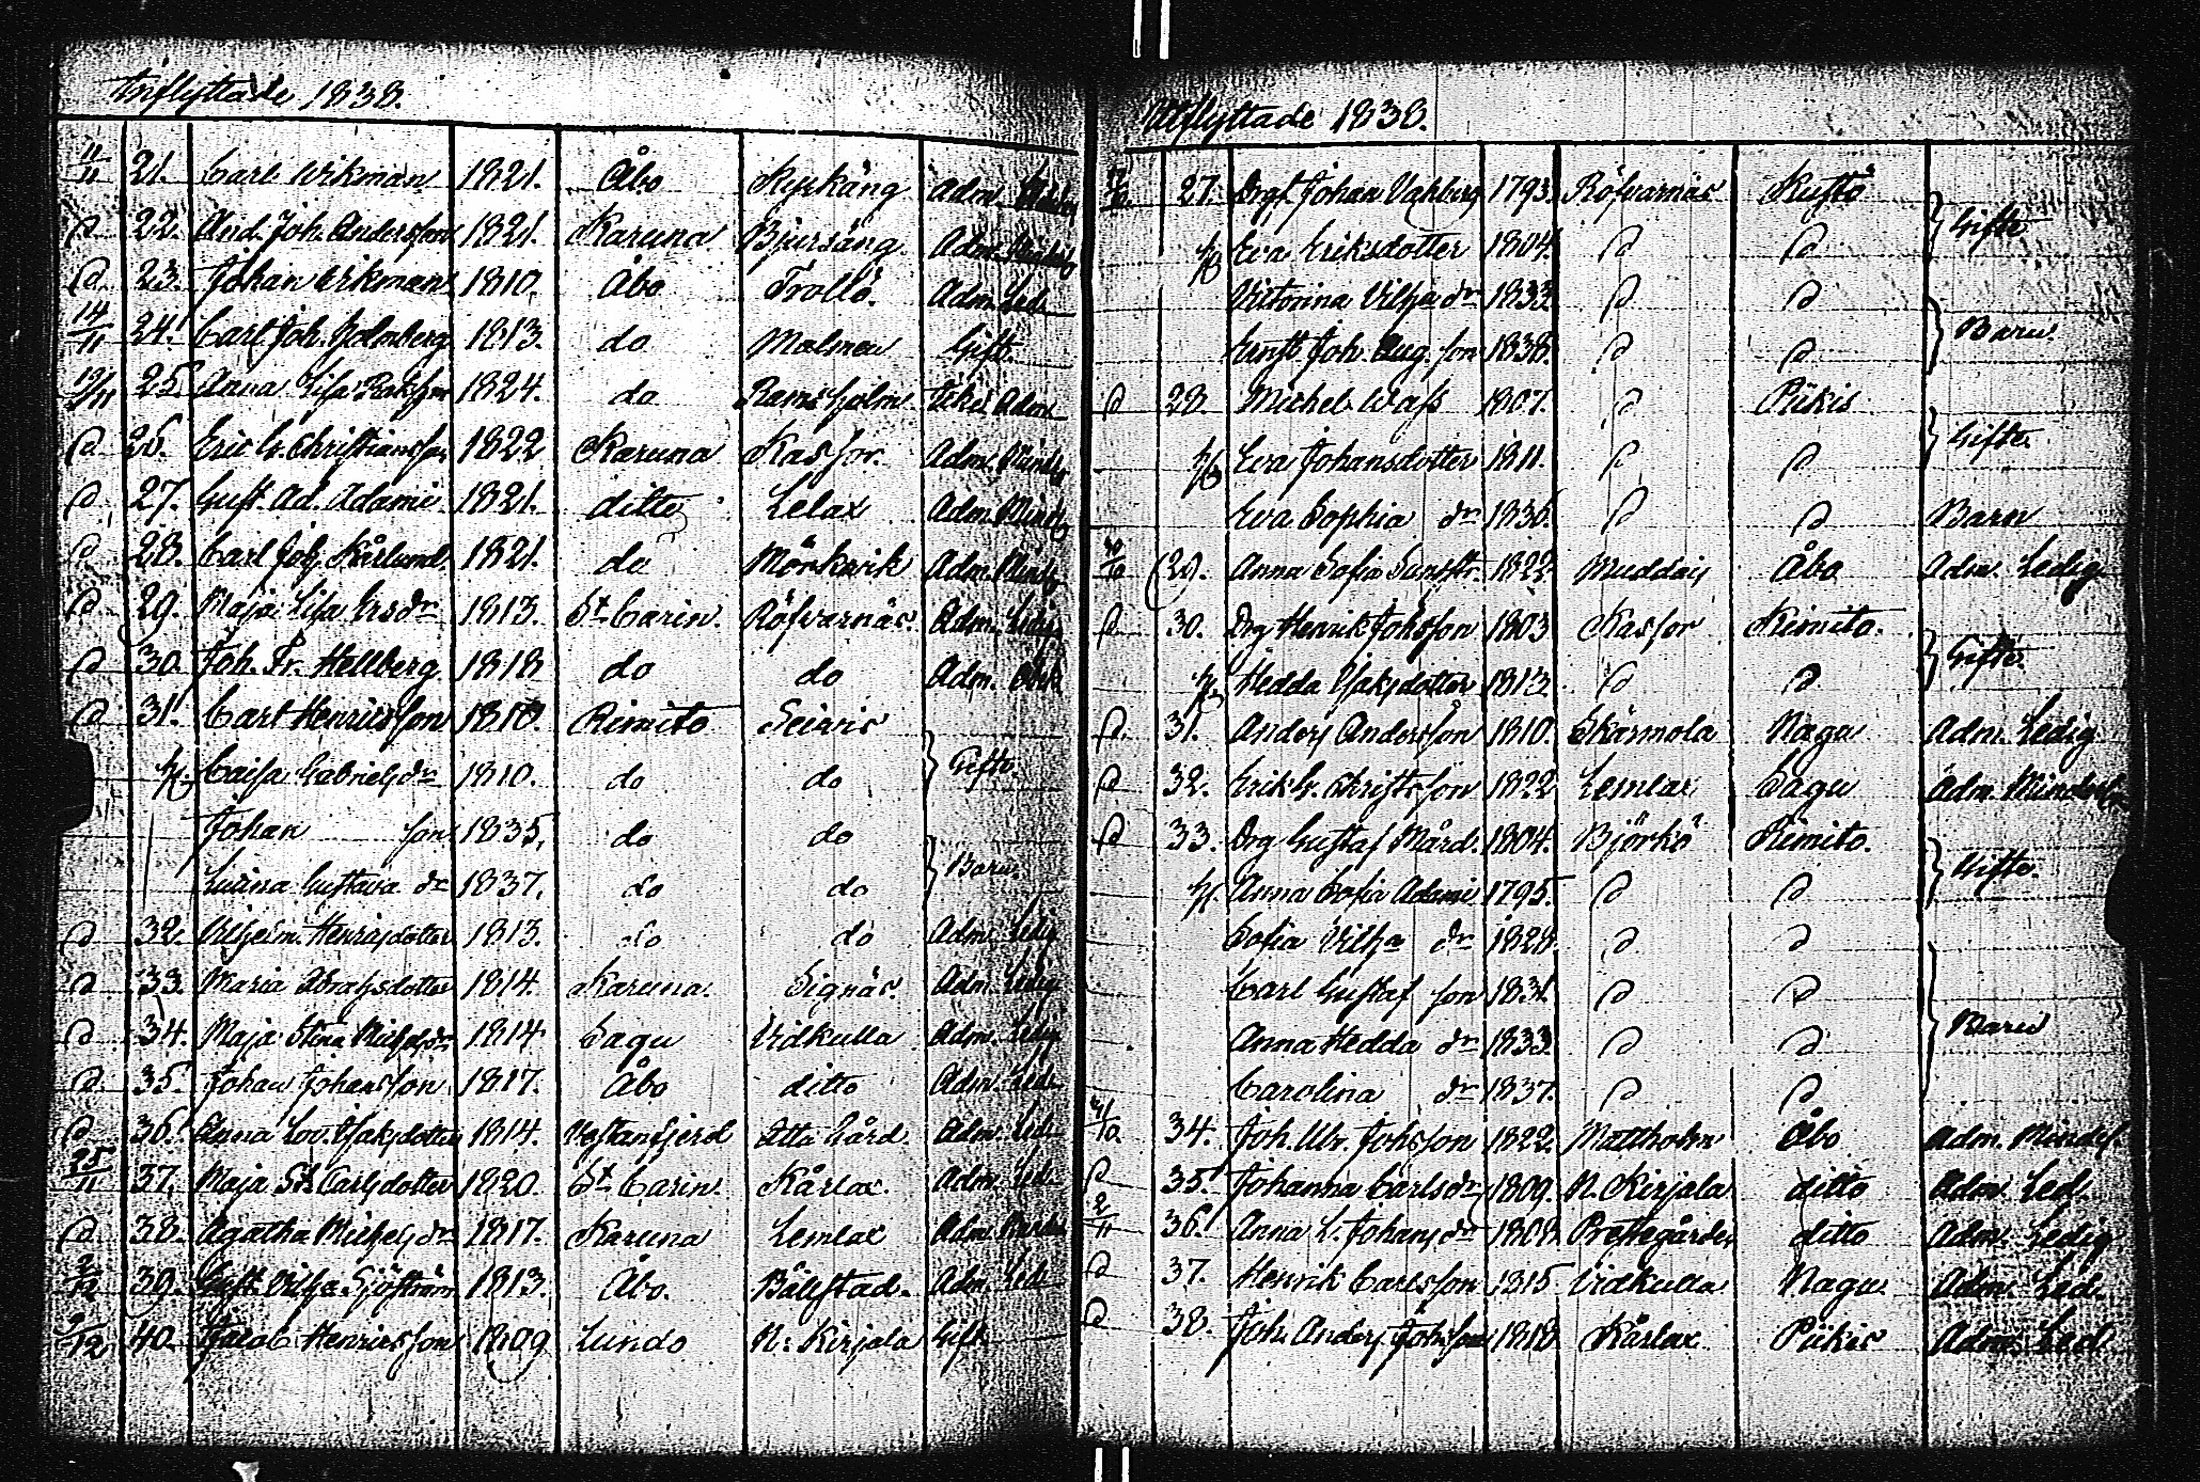 Inflyttade 1838.
11/11 21. Carl Wikman 1821. Åbo Adm.
D 22. And. Joh. Andersson 1821. Karuna Bjursäng Adm.
D 23. Johan Wikman 1810. Åbo Trollö. Adm. Led.
14/11 24. Carl Joh. Holmberg 1813. do Malmen Gift.
25. Anna Lisa 1824. do Ramsholm Adm
D 26. Eric G. Christiansson 1822 Karuna Kassor. Adm.
D 27. Gust. Ad. Adami 1821. ditto Lelax Adm.
D 28. Carl Joh. Kårlund 1821. do Mörkvik Adm.
D 29. Maja Lisa Ersdr 1813. St Carin. Röfvarnäs. Adm. Ledig
D 30. Joh. Fr. Hellberg 1818 do do Adm.
D 31. Carl Henricsson 1810. Rimito Seivis
H. Caisa Gabrielsdr 1810. do do Gifte.
Johan son 1835. do do
Gustava dr 1837. do do Barn.
D 32. Vilhelm. Henricsdotter 1813. do do Adm. Ledig
D 33. Maria Abrahsdotter 1814. Karuna. Signäs. Adm. Ledig
D 34. Maja Stina Michelsdr 1814 Sagu Vidkulla Adm. Ledig
D 35. Johan Johansson 1817. Åbo ditto Adm. Led.
D 36. Anna Lov. Isaksdotter 1814. Vestanfjerd Gård Adm. Led.
25/11 37. Maja St. Carlsdotter 1820. St Carin. Kårlax. Adm. Led.
D 38. Agatha Michelsdr 1817. Karuna Lemlax Adm.
2/12 39. Gust. Vilh. Sjöström 1813. Åbo. Bällstad. Adm. Led.
9/12 40. Jacob Henricsson 1809 Lundo N. Kirjala Gift
Utflyttade 1838.
27. Drgt Johan Vahberg 1793. Röfvarnäs Kustö
H Eva Eriksdotter 1804. D D Gifte
Victorina Vilha dr 1833. D D
Ernst Joh. Aug. son 1838. D D Barn.
D 28 Michel Wass 1807. D Piikis
H Eva Johansdotter 1811. D D Gifte
Eva Sophia dr 1836. D D Barn
29. Anna Sofia 1822 Muddais Åbo Adm. Ledig
D 30. Drg Henrik Johsson 1803 Kassor Kimito.
H Hedda Isaksdotter 1813. D D Gifte.
D 31. Anders Andersson 1810. Skärmola Nagu Adm. Ledig
D 32. Erik G. Christsson 1822 Lemlax Sagu Adm.
D 33. Drg Gustaf Mård. 1804. Björkö Rimito.
H. Anna Sofia Adami 1795. D D Gifte.
Sofia Vilha dr 1828. D D
Carl Gustaf son 1831. D D
Anna Hedda dr 1833. D D Barn
Carolina dr 1837. D D
34. Joh. Johsson 1822. Mattholm Åbo Adm.
D 35. Johanna Carlsdr 1809. N. Kirjala ditto Adm. Led.
2/11 36. Anna L. Johansdr 1808. Prestegården ditto Adm. Ledig
D 37. Henrik Carlsson 1815 Vidkulla Nagu Adm. Led.
D 38. Joh. Anders Johsson 1818 Kårlax Piikis Adm. Led